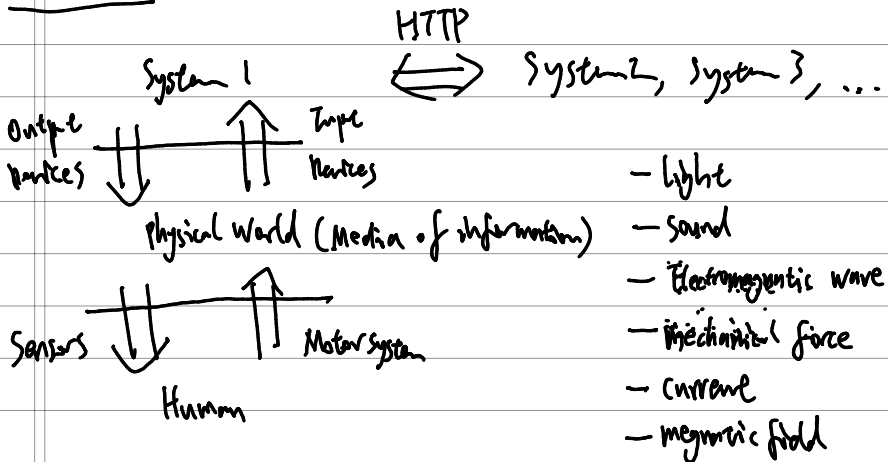 HTTP
System 1 System2, System 3, ...
Output Devices
Input Devices
Physical World (Media of information)
Sensors
Motor System
Human
- light
- sound
- Electromegentic wave
- mechanical force
- current
- megnatic field